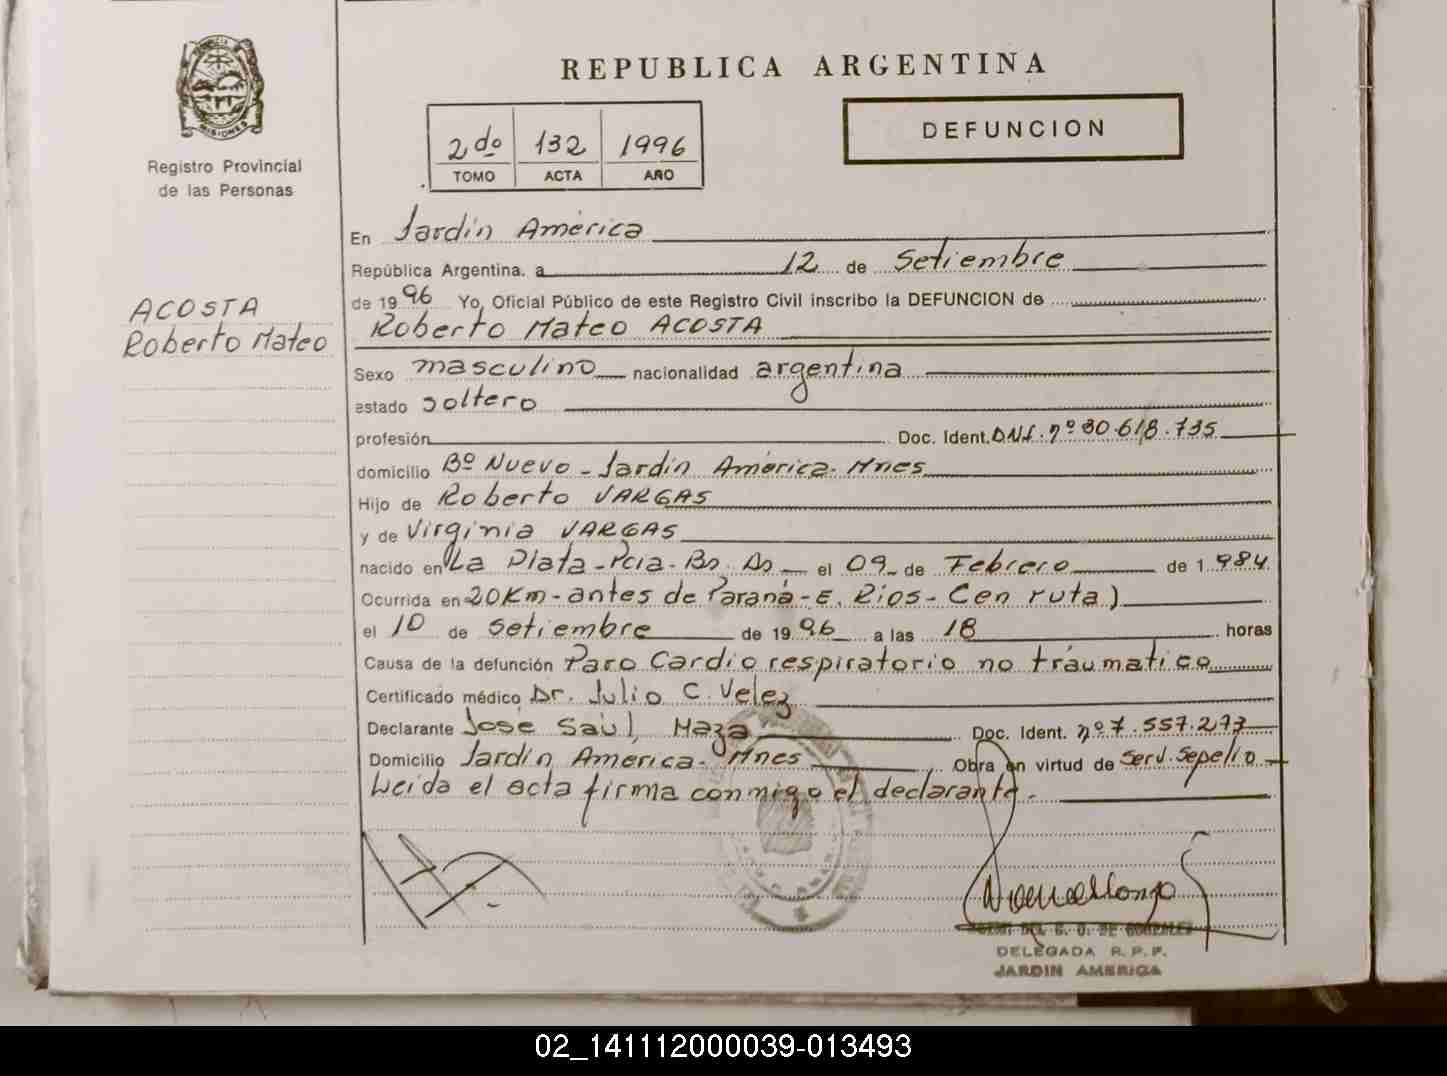 REPUBLICA ARGENTINA
PROVINCIA DE MISIONES
Registro Provincial
de las Personas
2do 132 1996
TOMO ACTA AÑO
DEFUNCION
En Jardín América
República Argentina. a 12 de Setiembre
de 1996 Yo, Oficial Público de este Registro Civil inscribo la DEFUNCION de
ACOSTA
Roberto Mateo
Roberto Mateo ACOSTA
Sexo masculino nacionalidad argentina
estado soltero
profesión Doc. Ident. D.N.I. nº 30.618.735
domicilio Bº Nuevo - Jardín América - Mnes
Hijo de Roberto VARGAS
y de Virginia VARGAS
nacido en La Plata - Pcia - Bs As el 09 de Febrero de 1.984
Ocurrida en 20Km - antes de Paraná - E. Rios - (en ruta)
el 10 de Setiembre de 1996 a las 18 horas
Causa de la defunción Paro Cardio respiratorio no traumatico
Certificado médico Dr. Julio C. Velez
Declarante José Saúl Maza Doc. Ident. nº 7.557.273
Domicilio Jardín America - Mnes Obra en virtud de Serv. Sepelio
Leida el acta firma conmigo el declarante.
DELEGADA R. P. P.
JARDIN AMERICA
02_141112000039-013493